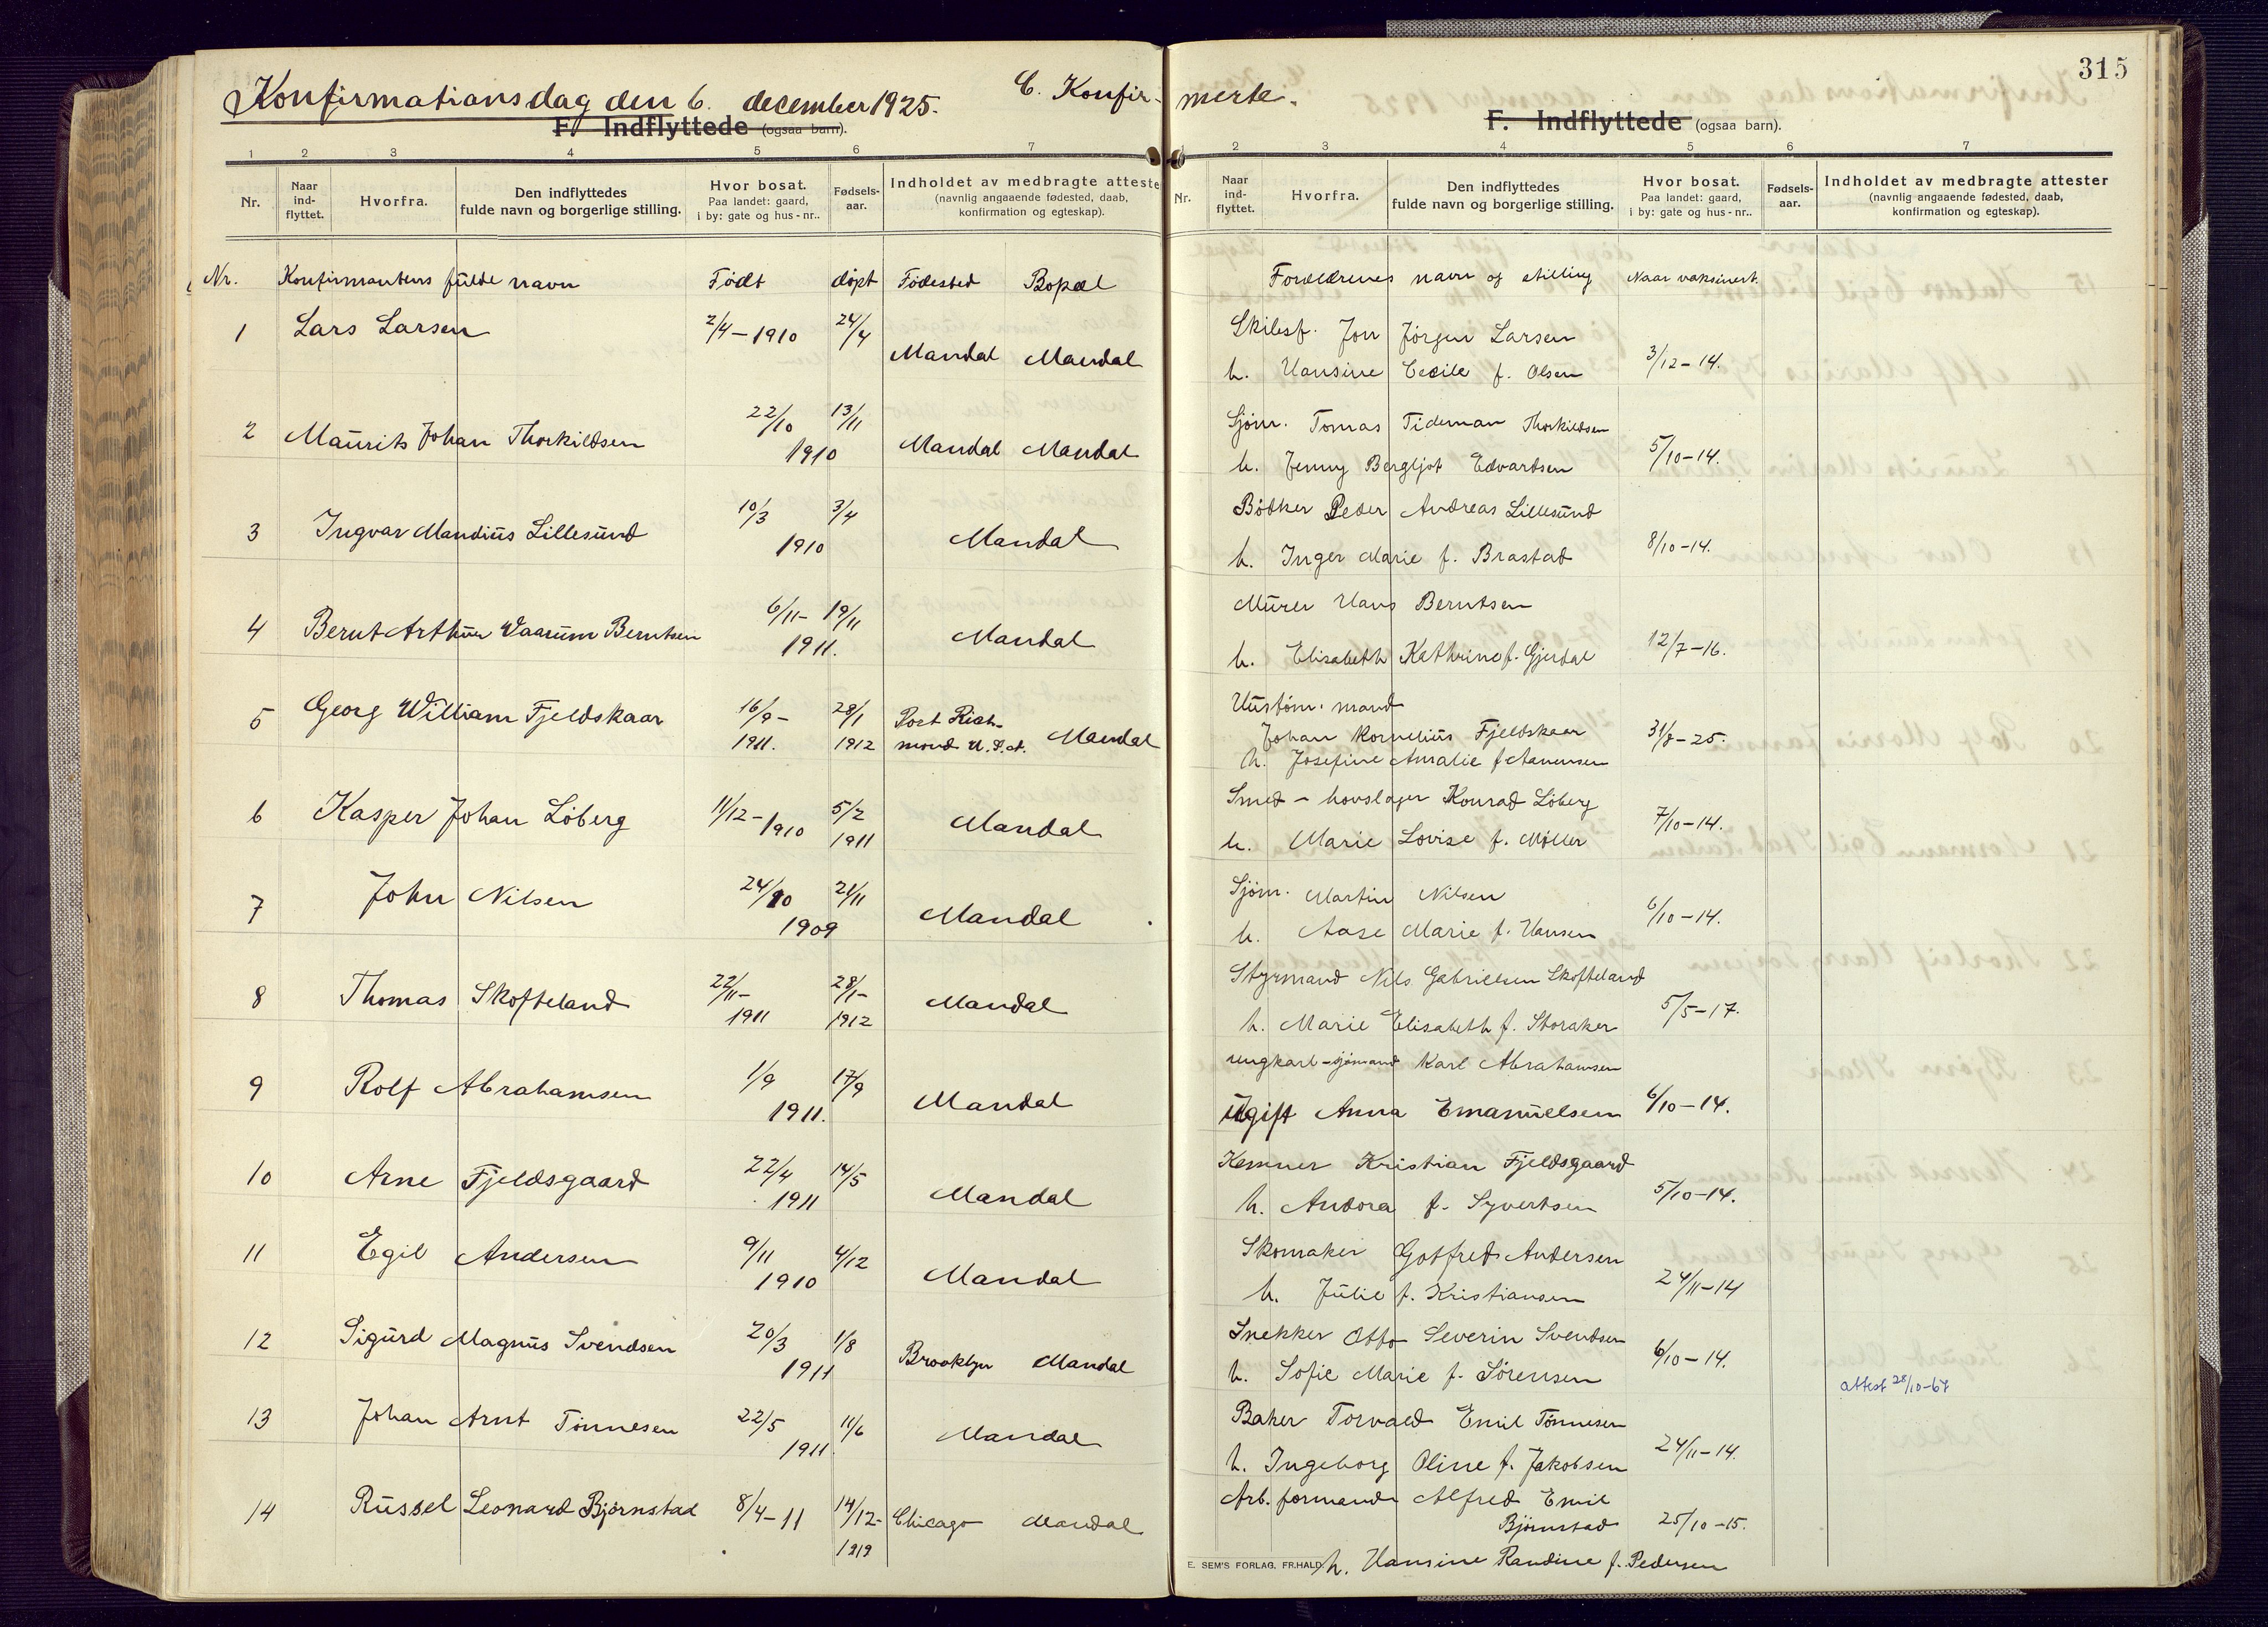 Konfirmationsdag den 6. december 1925.
C. Konfir- merte.
315
F. Indflyttede (ogsaa barn).
F. Indflyttede (ogsaa barn).
1 2 3 4 5 6 7
1 2 3 4 5 6 7
Nr. Naar ind-flyttet. Hvorfra. Den indflyttedes fulde navn og borgerlige stilling. Hvor bosat. Paa landet: gaard, i by: gate og hus-nr.. Fødsels-aar. Indholdet av medbragte atteste (navnlig angaaende fødested, daab, konfirmation og egteskap).
Nr. Naar ind-flyttet. Hvorfra. Den indflyttedes fulde navn og borgerlige stilling. Hvor bosat. Paa landet: gaard, i by: gate og hus-nr.. Fødsels-aar. Indholdet av medbragte attester (navnlig angaaende fødested, daab, konfirmation og egteskap).
Nr. Konfirmantens fulde navn Født døpt Fødested Bopæl Forældrenes navn og stilling Naar vaksinert.
1 Lars Larsen 2/4-1910 24/4 Mandal Mandal Skibsf. Jon Jørgen Larsen
h. Hansine Cecile f. Olsen 3/12-14.
2 Maurits Johan Thorkildsen 22/10 1910 13/11 Mandal Mandal Sjøm. Tomas Tideman Thorkildsen
h. Jenny Bergljot Edvartsen 5/10-14.
3 Ingvar Mandius Lillesund 10/3 1910 3/4 Mandal Bødker Peder Andreas Lillesund
h. Inger Marie f. Brastad 8/10-14.
4 Bernt Arthur Waarum Berntsen 6/11- 1911. 19/11 Mandal Murer Hans Berntsen
h. Elisabeth Kathrine f. Gjerdal 12/7-16.
5 Georg William Fjeldskaar 16/9- 1911. 28/1 1912 Port Rich-mond U.S.A. Mandal Hustøm. mand
Johan Kornelius Fjeldskaar 31/8-25.
h. Josefine Amalie f.
6 Kasper Johan Løberg 11/12-1910 5/2 1911 Mandal Smed - hovslager Konrad Löberg
h. Marie Lovise f. Møller 7/10-14.
7 John Nilsen 24/10 1909 21/11 Mandal Sjøm. Martin Nilsen
h. Aase Marie f. Hansen 6/10-14.
8 Thomas Skofteland 22/11- 1911 28/1- 1912 Mandal Styrmand Nils Gabrielsen Skofteland
h. Marie Elisabeth f. Storaker 5/5-17.
9 Rolf Abrahamsen 1/9 1911. 17/9 Mandal ungkarl-sjømand Karl Abrahamsen
Ugift Anna Emanuelsen 6/10-14.
10 Arne Fjeldsgaard 22/4 1911 14/5 Mandal Kemner Kristian Fjeldsgaard
h. Andora f. Syvertsen 5/10-14.
11 Egil Andersen 9/11 1910 4/12 Mandal Skomaker Gotfred Andersen
h. Julie f. Kristiansen 24/11-14
12 Sigurd Magnus Svendsen 20/3 1911 1/8 Brooklyn Mandal Snekker Otto Severin Svendsen
h. Sofie Marie f. Sörensen 6/10-14.
attest 28/10-67
13 Johan Arnt Tönnesen 22/5 1911. 11/6 Mandal Baker Torvald Emil Tönnesen
h. Ingeborg Oline f. Jakobsen 24/11-14.
14 Russel Leonard Bjørnstad 8/4-11 14/12- 1912 Chicago Mandal Arb. formand Alfred Emil
Bjørnstad 25/10-15.
E. SEM'S FORLAG, FR.HALD. h. Hansine Randine f. Pedersen